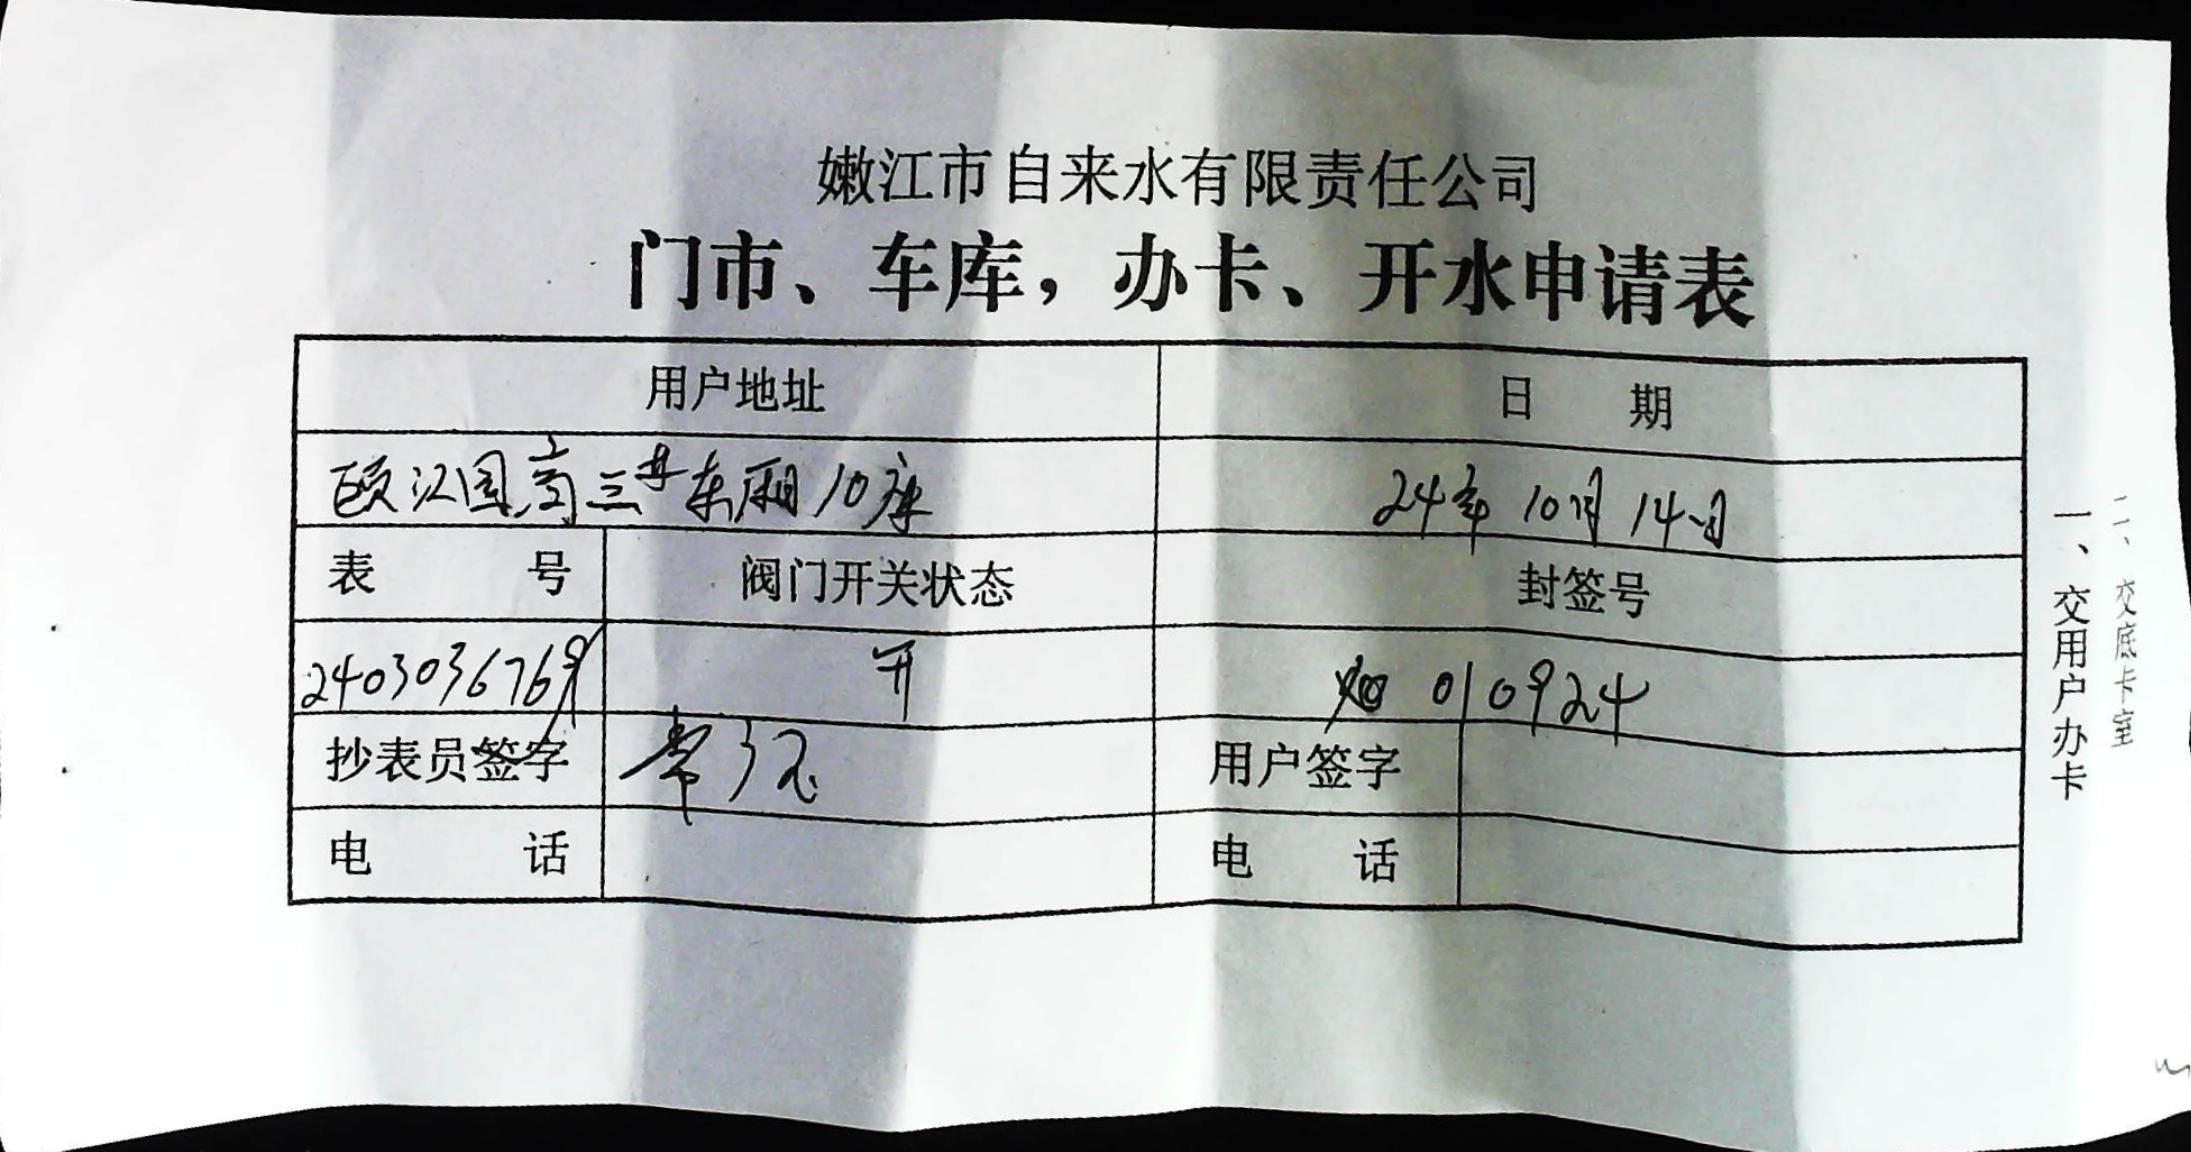 嫩江市自来水有限责任公司
门市、车库，办卡、开水申请表
用户地址 日 期
颐江园高三#东厢10库 24年10月14日
表 号 阀门开关状态 封签号
2403036769 开 010924
抄表员签字 用户签字
电 话 电 话
一、交用户办卡
二、交底卡室